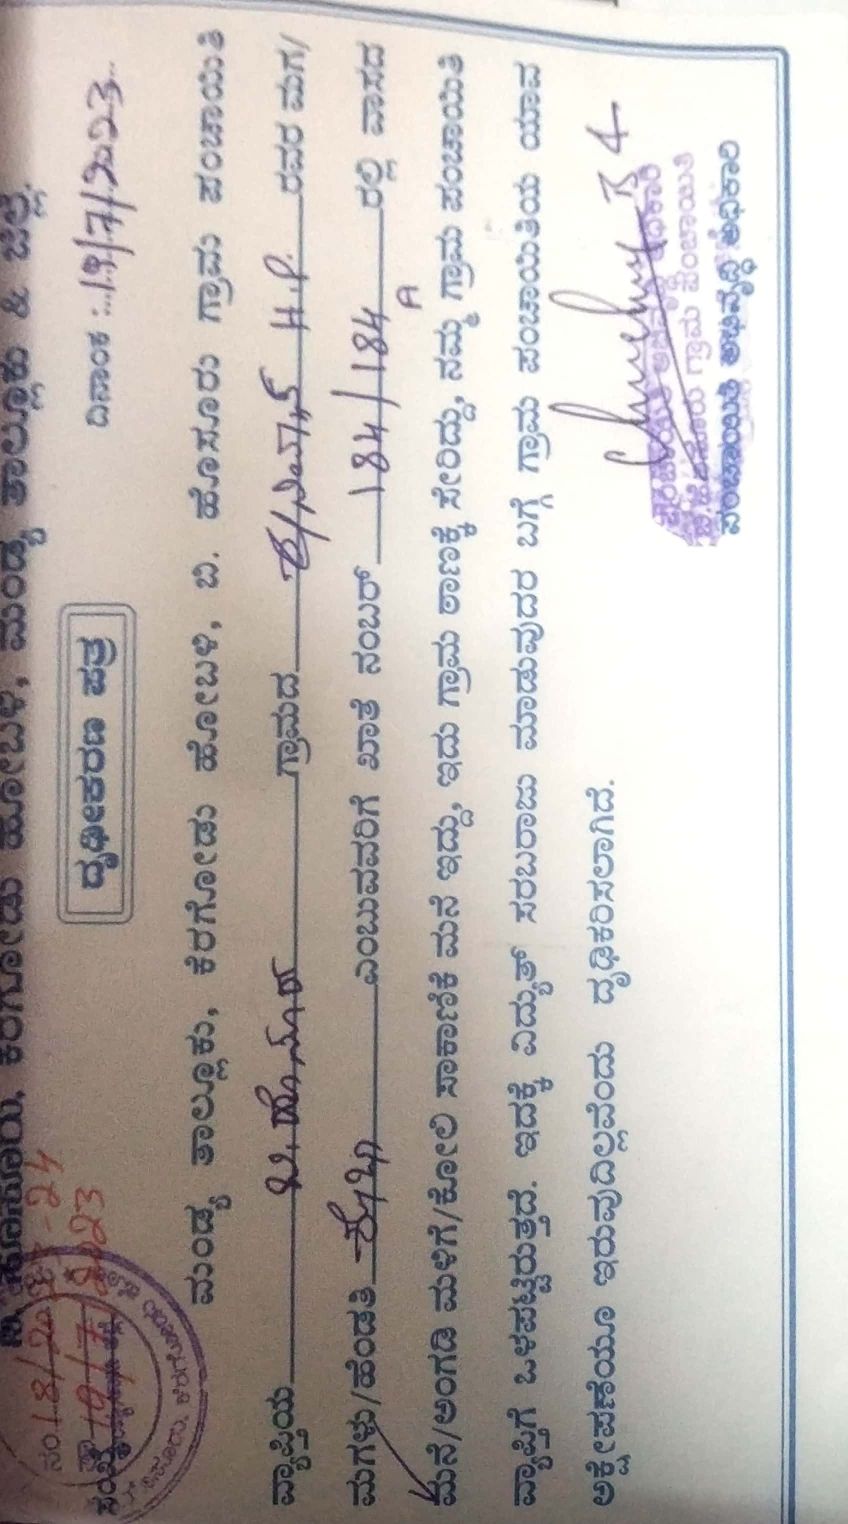 ಬಿ. ಹೊಸೂರು, ಕೆರಗೋಡು ಹೋಬಳಿ, ಮಂಡ್ಯ ತಾಲ್ಲೂಕು & ಜಿಲ್ಲೆ.
ನಂ. 18/2023-24
19/7/2023
ದಿನಾಂಕ : 19/7/2023
ದೃಢೀಕರಣ ಪತ್ರ
ಮಂಡ್ಯ ತಾಲ್ಲೂಕು, ಕೆರಗೋಡು ಹೋಬಳಿ, ಬಿ. ಹೊಸೂರು ಗ್ರಾಮ ಪಂಚಾಯಿತಿ
ವ್ಯಾಪ್ತಿಯ ಬಿ. ಹೊಸೂರು ಗ್ರಾಮದ H.P. ರವರ ಮಗ/
ಮಗಳು/ಹೆಂಡತಿ ಶೋಭಾ ಎಂಬುವವರಿಗೆ ಖಾತೆ ನಂಬರ್ 184/184 A ರಲ್ಲಿ ವಾಸದ
ಮನೆ/ಅಂಗಡಿ ಮಳಿಗೆ/ಕೋಳಿ ಸಾಕಾಣಿಕೆ ಮನೆ ಇದ್ದು, ಇದು ಗ್ರಾಮ ಠಾಣಕ್ಕೆ ಸೇರಿದ್ದು, ನಮ್ಮ ಗ್ರಾಮ ಪಂಚಾಯಿತಿ
ವ್ಯಾಪ್ತಿಗೆ ಒಳಪಟ್ಟಿರುತ್ತದೆ. ಇದಕ್ಕೆ ವಿದ್ಯುತ್ ಸರಬರಾಜು ಮಾಡುವುದರ ಬಗ್ಗೆ ಗ್ರಾಮ ಪಂಚಾಯಿತಿಯ ಯಾವ
ಅಕ್ಷೇಪಣೆಯೂ ಇರುವುದಿಲ್ಲವೆಂದು ದೃಢಿಕರಿಸಲಾಗಿದೆ.
ಪಂಚಾಯಿತಿ ಅಭಿವೃದ್ಧಿ ಅಧಿಕಾರಿ
ಬಿ.ಹೊಸೂರು ಗ್ರಾಮ ಪಂಚಾಯಿತಿ
ಪಂಚಾಯಿತಿ ಅಭಿವೃದ್ಧಿ ಅಧಿಕಾರಿ